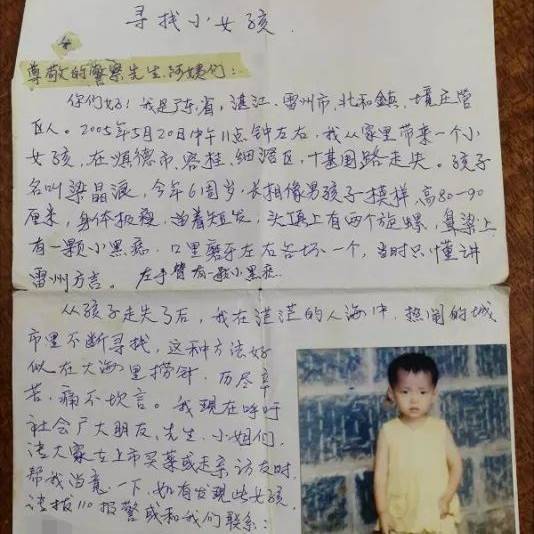 寻找小女孩.
尊敬的警察先生.阿姨们:
你们好!我是广东省,湛江.雷州市.北和鎮.境庄管
区人。2005年5月20日中午11点钟左右,我从家里带来一个小
女孩,在顺德市.容桂.细滘区,十基围路走失。孩子
名叫梁晶浪,今年6周岁,长相像男孩子一模样,高80一90
厘米,身体极瘦.留着短发,头顶上有两个旋螺,鼻梁上
有一颗小黑痣.口里磨牙左右各坏一个,当时只懂讲
雷州方言。左手臂有一颗小黑痣.
从孩子走失了后,我在茫茫的人海中,热闹的城
市里不断寻找,这种方法好
似在大海里捞针.历尽辛
苦,痛不坎言。我现在呼吁
社会广大朋友,先生.小姐们,
请大家在上市买菜或走亲访友时,
帮我留意一下,如有发现此女孩,
请拔110报警或和我们联系: